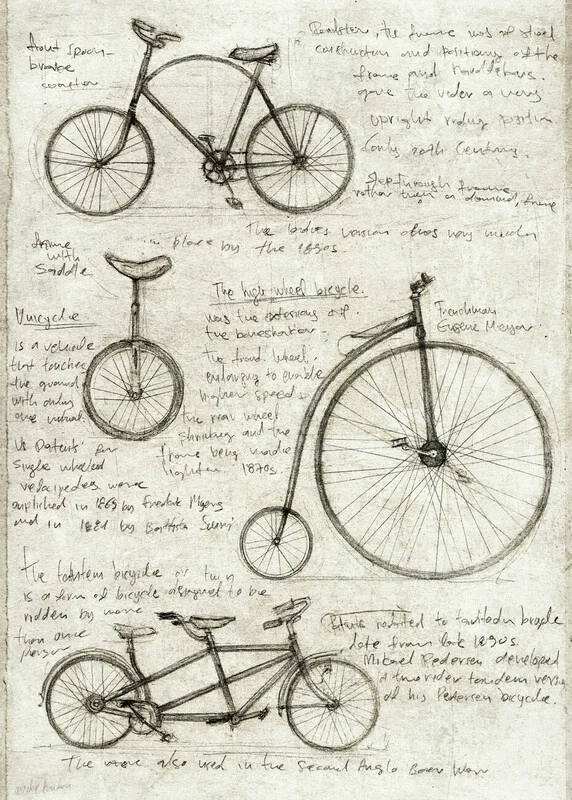 front spoon
brake
Roadster, the frame was of steel
construction and positions of the
frame and handlebars
gave the rider a very
upright riding position
early 20th Century.
Step through frame
rather than a diamond frame
The ladies version was very much
in place by the 1890s.
frame
with
Saddle
Unicycle
is a vehicle
that touches
the ground
with only
one wheel.
US Patents for
Single wheeled
velocipedes were
published in 1869 by Fredrik Myers
and in 1881 by Battista
The high wheel bicycle.
was the extension of
the boneshaker.
the front wheel
enlarging to enable
higher speeds
the rear wheel
shrinking and the
frame being made
lighter. 1870s.
Frenchman
Eugene Meyer
The tandem bicycle or twin
is a form of bicycle designed to be
ridden by more
than one
person
related to tandem bicycle
date from late 1890s
Mikael Pedersen developed
a two rider tandem version
of his Pedersen bicycle.
The were also used in the Second Anglo Boer War